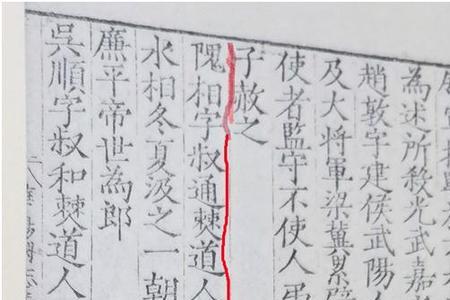 為述所殺光武嘉
趙敦字建侯武陽
及大将軍梁冀累
使者監守不使人
子赦之
隗相字叔通僰道人
水相冬夏汲之一朝
廉平帝世為郎
吳順字叔和僰道人